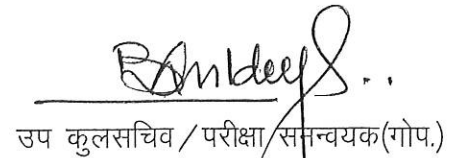 उप कुलसचिव/परीक्षा समन्वयक(गोप.)